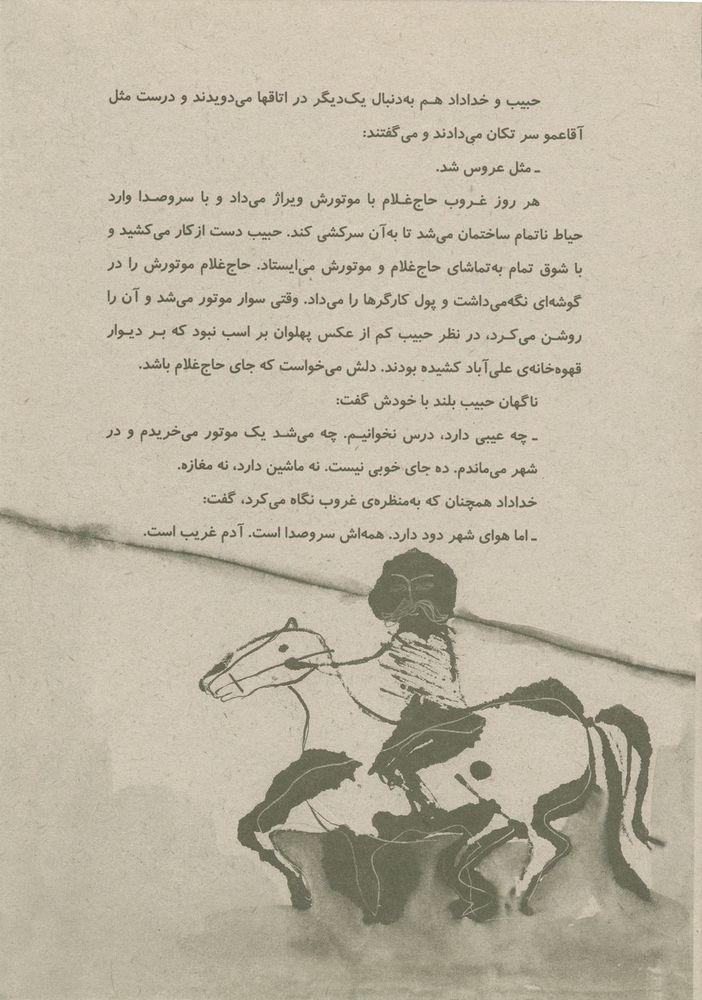 حبیب و خداداد هم به‌دنبال یک‌دیگر در اتاقها می‌دویدند و درست مثل
آقاعمو سر تکان می‌دادند و می‌گفتند:
ـ مثل عروس شد.
هر روز غروب حاج‌غلام با موتورش ویراژ می‌داد و با سروصدا وارد
حیاط ناتمام ساختمان می‌شد تا به‌آن سرکشی کند. حبیب دست ازکار می‌کشید و
با شوق تمام به‌تماشای حاج‌غلام و موتورش می‌ایستاد. حاج‌غلام موتورش را در
گوشه‌ای نگه‌می‌داشت و پول کارگرها را می‌داد. وقتی سوار موتور می‌شد و آن را
روشن می‌کرد، در نظر حبیب کم از عکس پهلوان بر اسب نبود که بر دیوار
قهوه‌خانه‌ی علی‌آباد کشیده بودند. دلش می‌خواست که جای حاج‌غلام باشد.
ناگهان حبیب بلند با خودش گفت:
ـ چه عیبی دارد، درس نخوانیم. چه می‌شد یک موتور می‌خریدم و در
شهر می‌ماندم. ده جای خوبی نیست. نه ماشین دارد، نه مغازه.
خداداد همچنان که به‌منظره‌ی غروب نگاه می‌کرد، گفت:
ـ اما هوای شهر دود دارد. همه‌اش سروصدا است. آدم غریب است.